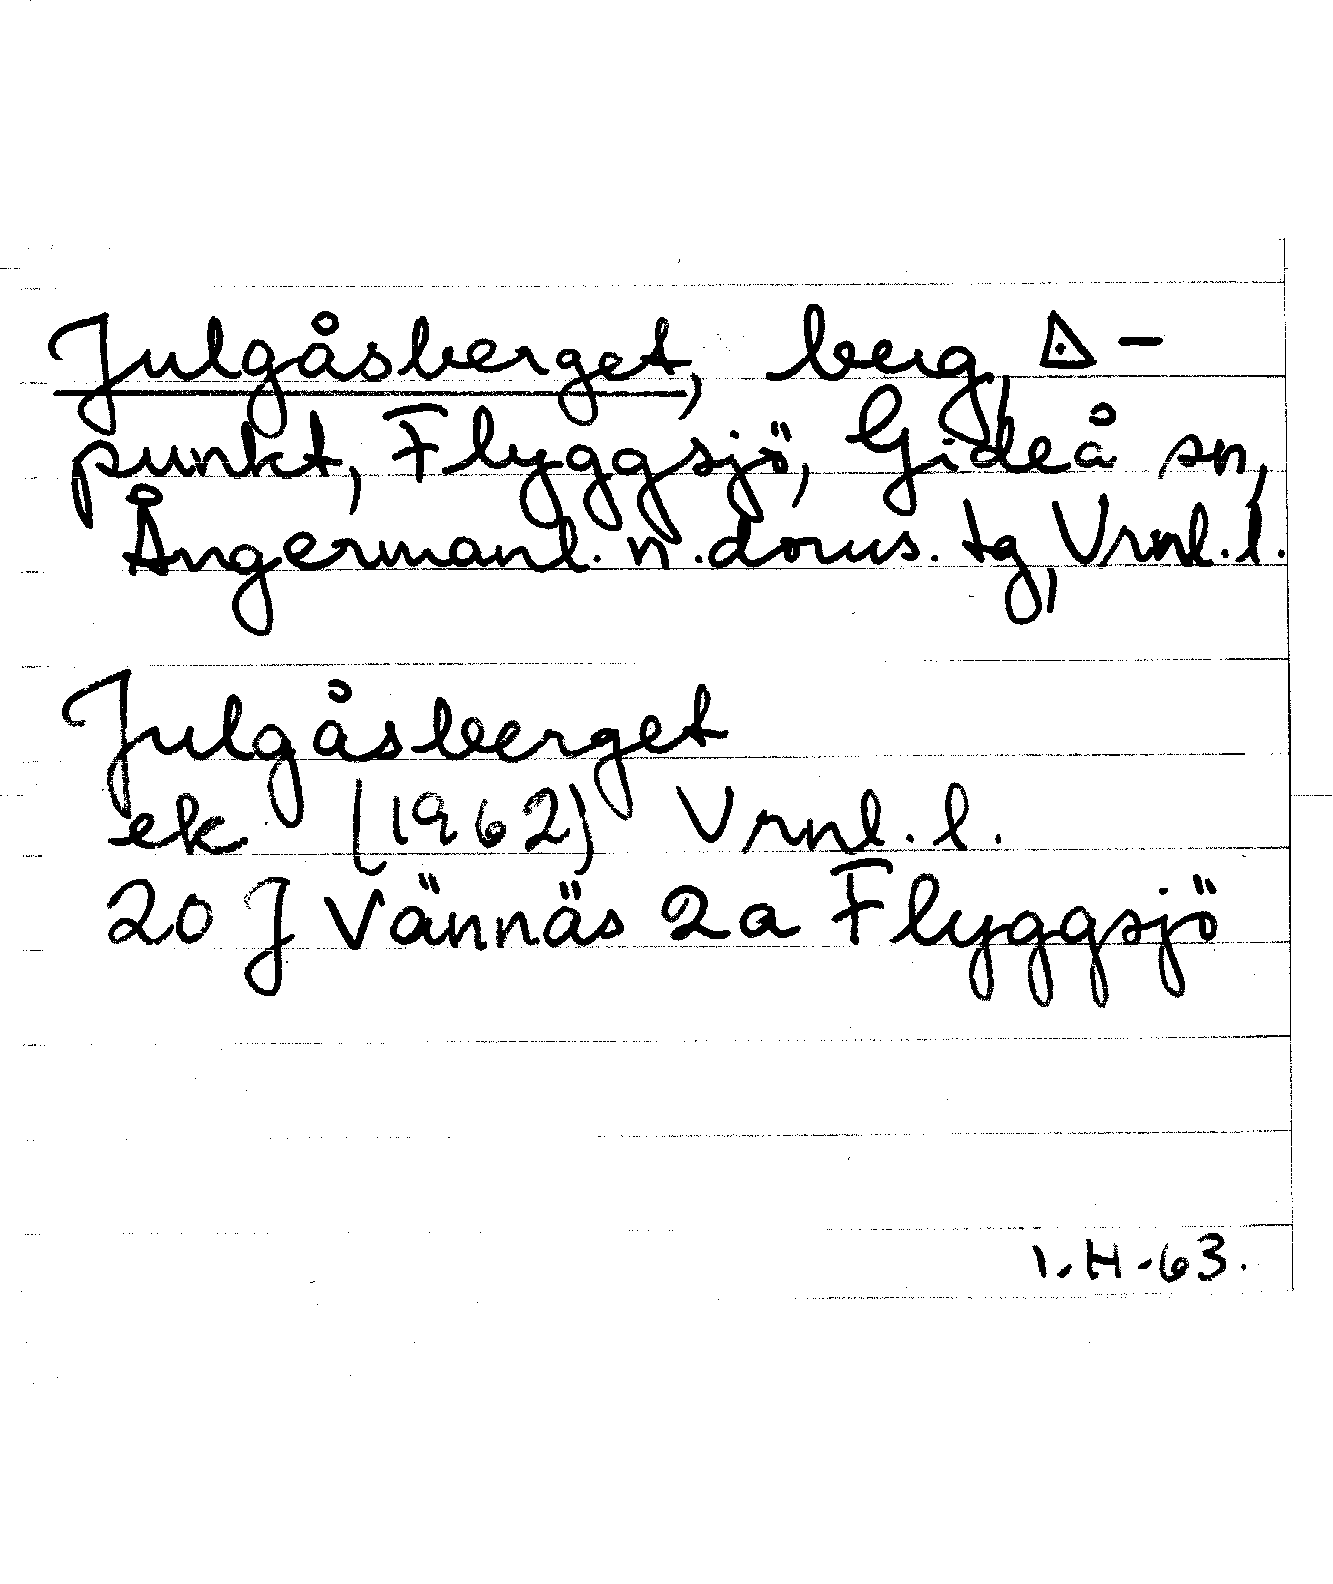 Julgåsberget, berg, △-
punkt, Flyggsjö, Gideå sn,
Ångermanl. n. doms. tg, Vrnl. l.
Julgåsberget
ek (1962) Vrnl. l.
20 J Vännäs 2a Flyggsjö
1.H-63.